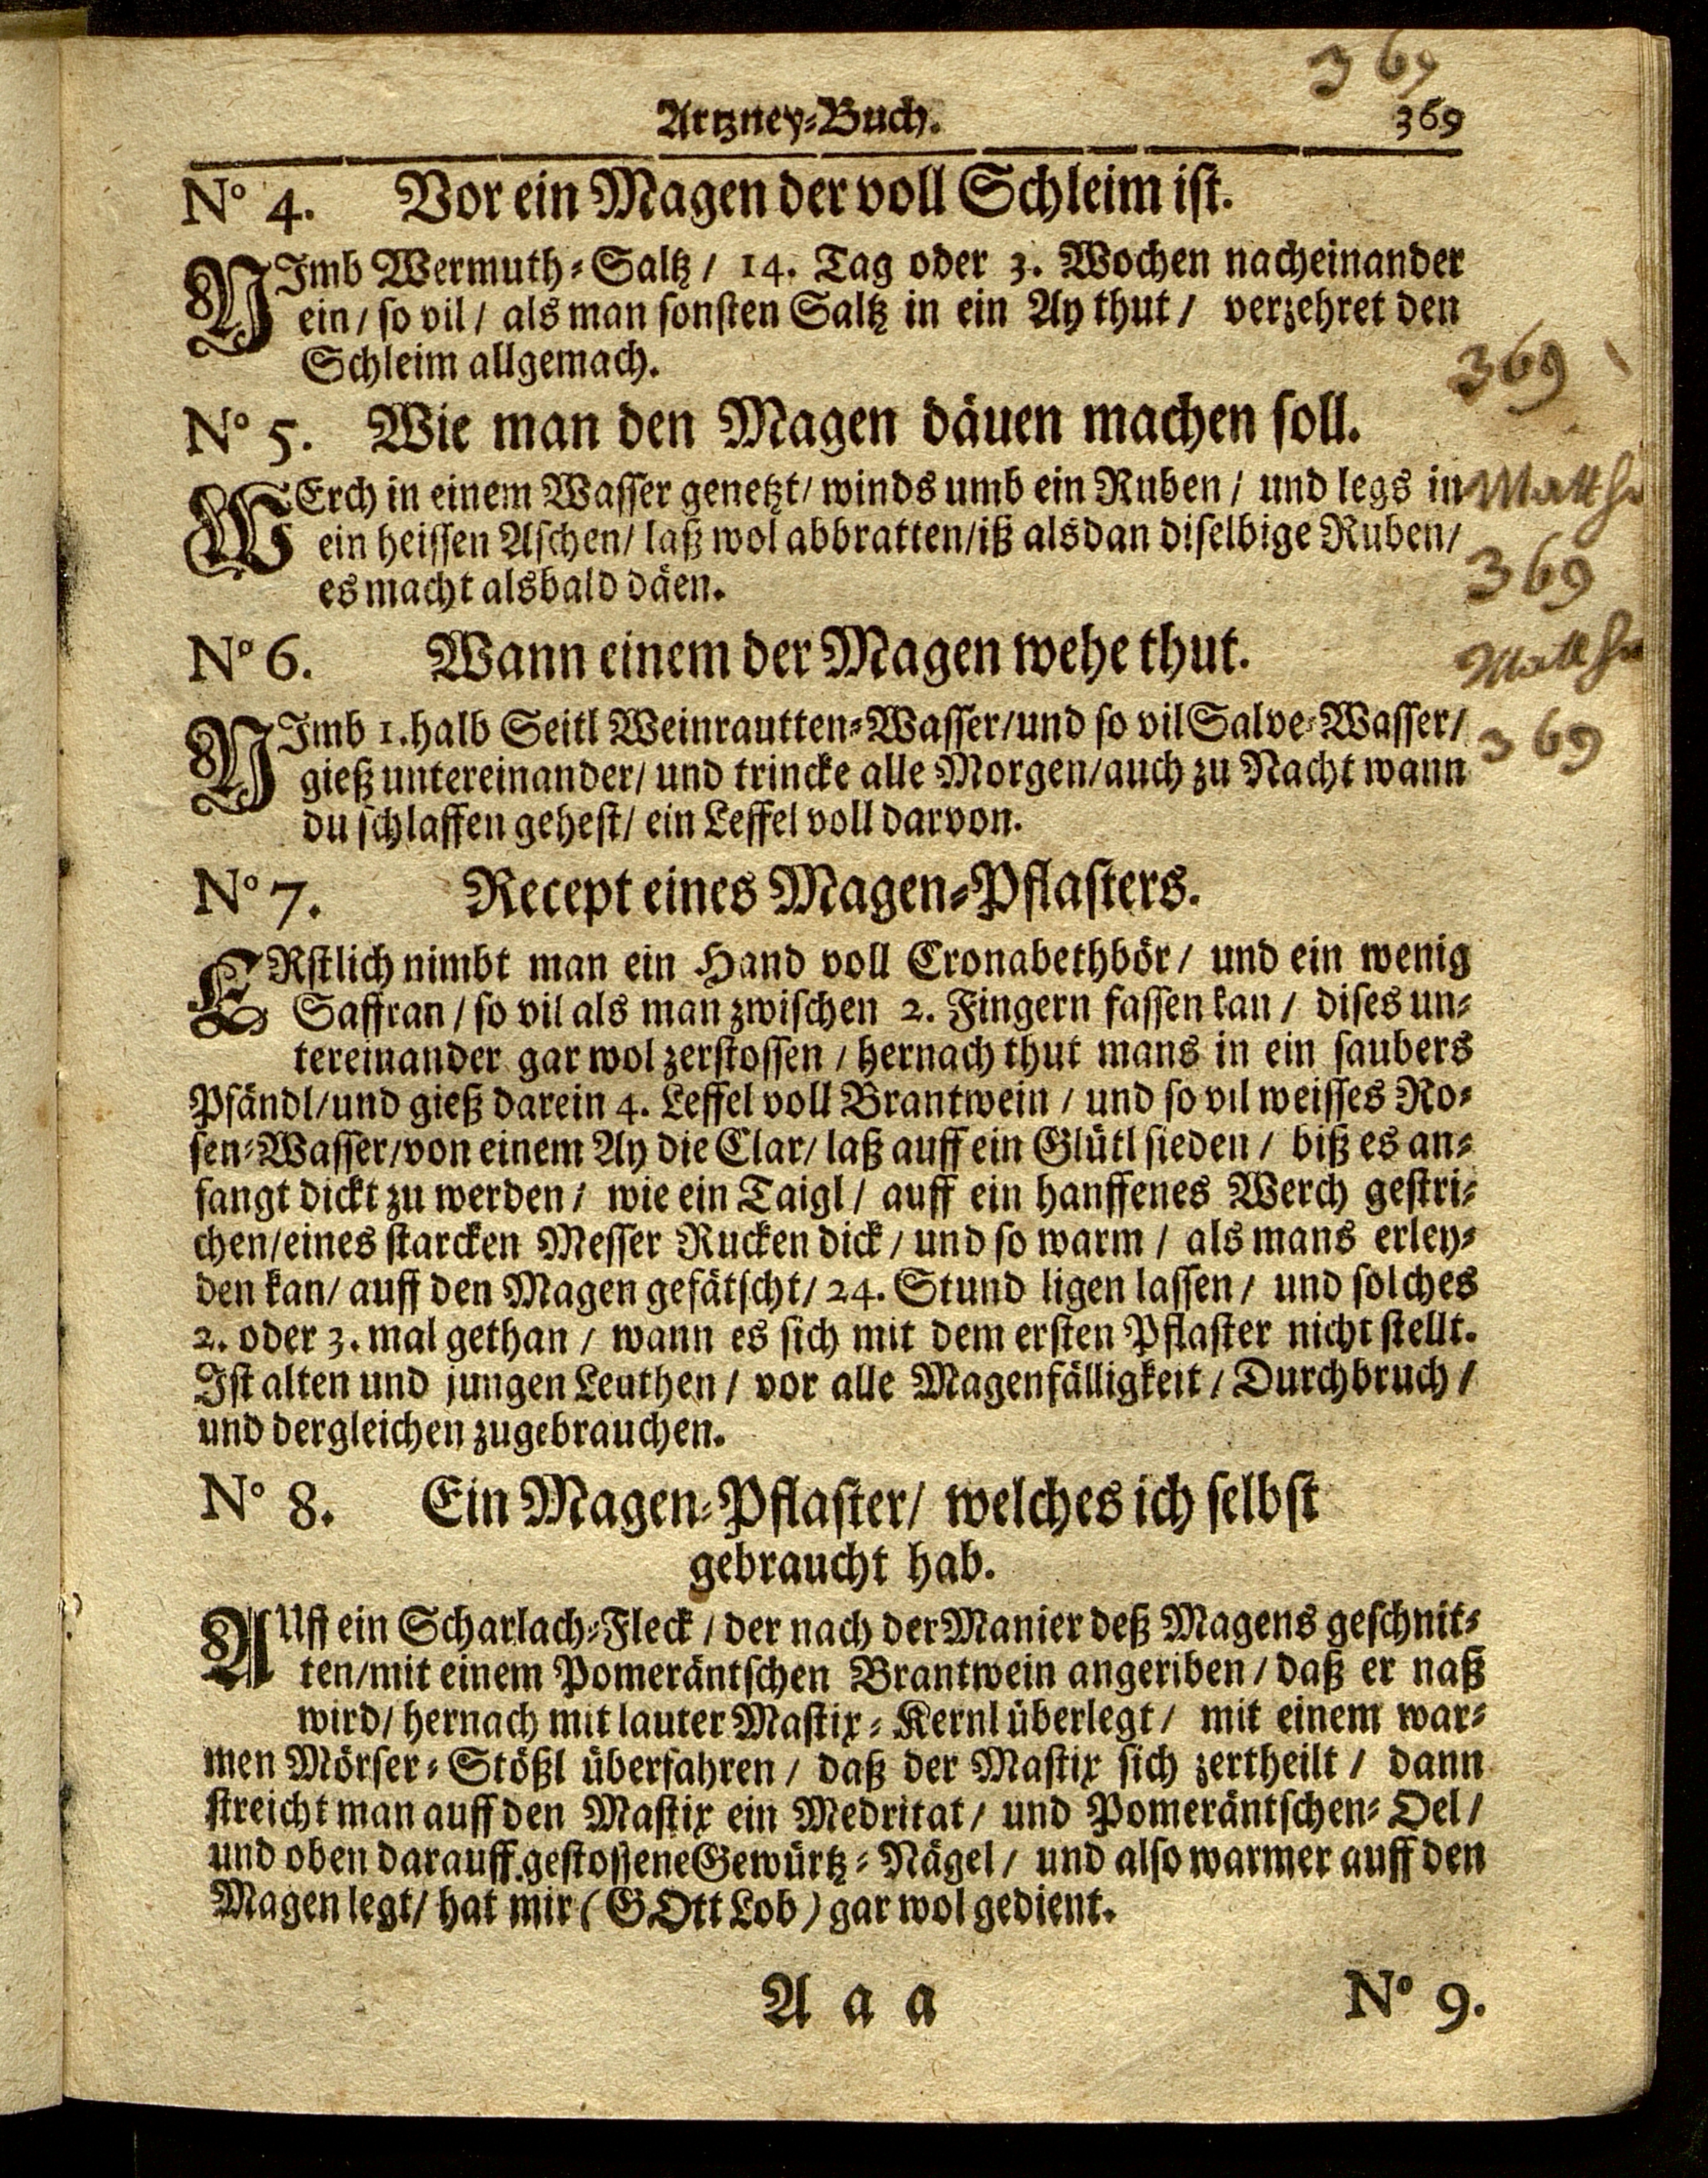 369
Artzney-Buch. 369
No 4. Vor ein Magen der voll Schleim ist.
NImb Wermuth-Saltz / 14. Tag oder 3. Wochen nacheinander
ein / so vil / als man sonsten Saltz in ein Ay thut / verzehret den
Schleim allgemach.
369
No 5. Wie man den Magen däuen machen soll.
WErch in einem Wasser genetzt / winds umb ein Ruben / und legs in
ein heissen Aschen / laß wol abbratten / iß alsdan diselbige Ruben /
es macht alsbald däen.
369
No 6. Wann einem der Magen wehe thut.
NImb 1. halb Seitl Weinrautten-Wasser / und so vil Salve-Wasser /
369
gieß untereinander / und trincke alle Morgen / auch zu Nacht wann
du schlaffen gehest / ein Leffel voll darvon.
No 7. Recept eines Magen-Pflasters.
ERstlich nimbt man ein Hand voll Cronabethbör / und ein wenig
Saffran / so vil als man zwischen 2. Fingern fassen kan / dises un-
tereinander gar wol zerstossen / hernach thut mans in ein saubers
Pfändl / und gieß darein 4. Leffel voll Brantwein / und so vil weisses Ro-
sen-Wasser / von einem Ay die Clar / laß auff ein Glütl sieden / biß es an-
fangt dickt zu werden / wie ein Taigl / auff ein hanffenes Werch gestri-
chen / eines starcken Messer Rucken dick / und so warm / als mans erley-
den kan / auff den Magen gefätscht / 24. Stund ligen lassen / und solches
2. oder 3. mal gethan / wann es sich mit dem ersten Pflaster nicht stellt.
Ist alten und jungen Leuthen / vor alle Magenfälligkeit / Durchbruch /
und dergleichen zugebrauchen.
No 8. Ein Magen-Pflaster / welches ich selbst
gebraucht hab.
AUff ein Scharlach-Fleck / der nach der Manier deß Magens geschnit-
ten / mit einem Pomeräntschen Brantwein angeriben / daß er naß
wird / hernach mit lauter Mastix-Kernl überlegt / mit einem war-
men Mörser-Stößl überfahren / daß der Mastix sich zertheilt / dann
streicht man auff den Mastix ein Medritat / und Pomeräntschen-Oel /
und oben darauff gestossene Gewürtz-Nägel / und also warmer auff den
Magen legt / hat mir (GOtt Lob) gar wol gedient.
A a a No 9.